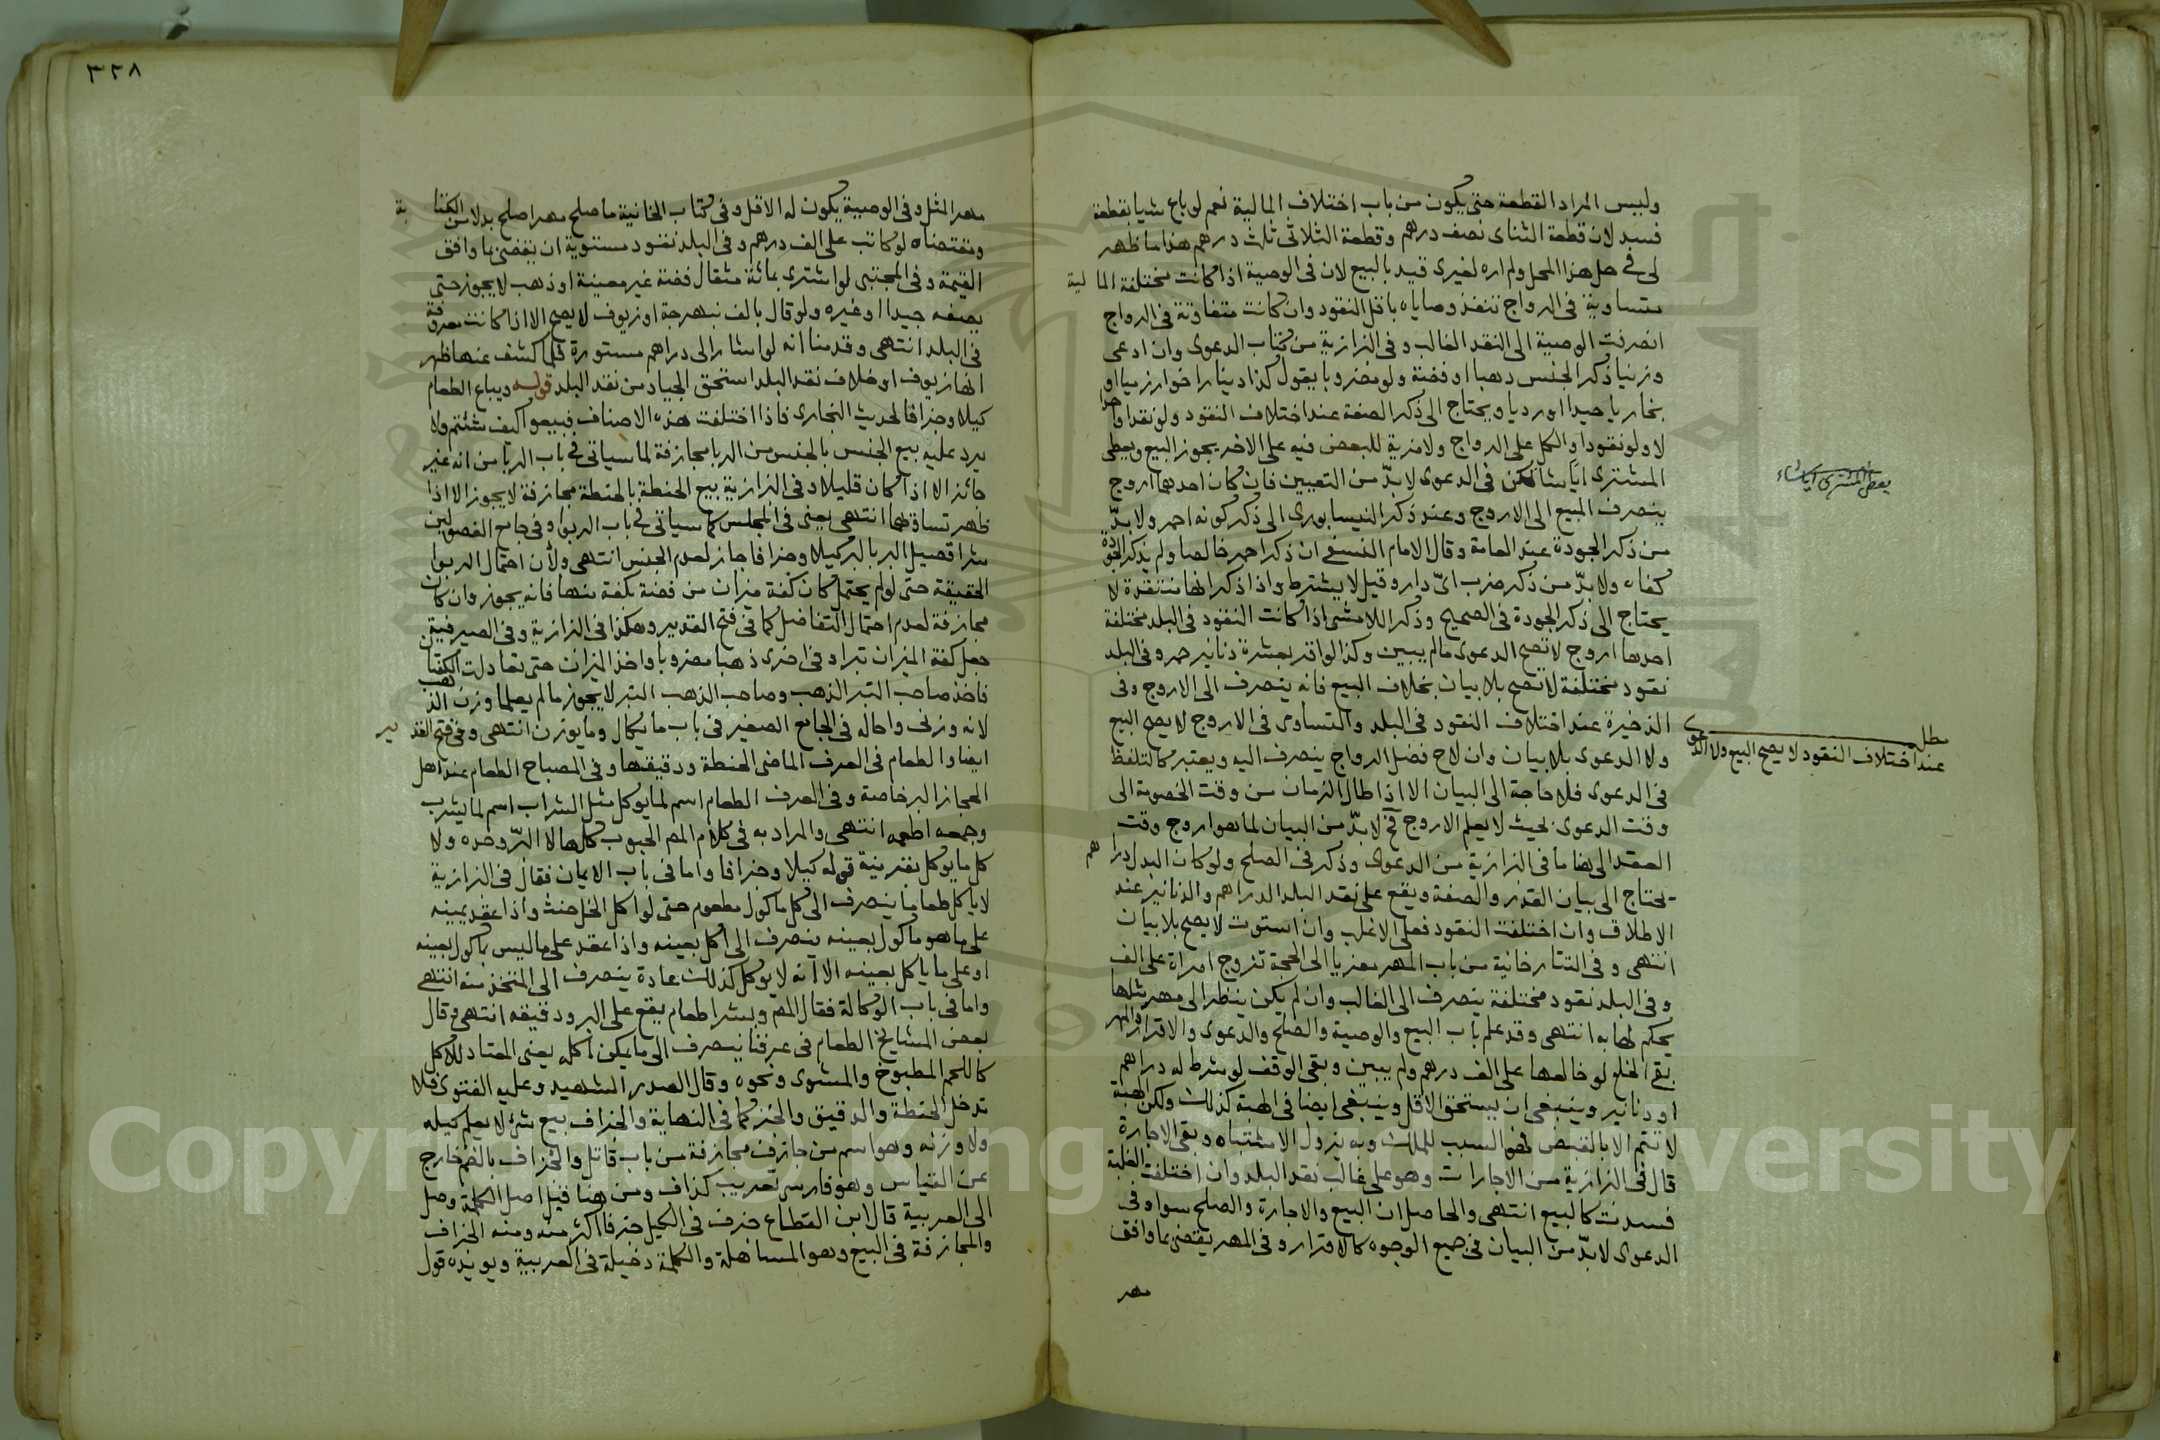 وليس المراد القطعة حتى يكون من باب اختلاف المالية نعم لو باع شيا بقطعة
فسد لان قطعة الثنائى نصف درهم وقطعة الثلاثى ثلث درهم هذا ما ظهر
لى فى حل هذا المحل ولم اره لغيرى قيد بالبيع لان فى الوصية اذا كانت مختلفة المالية
متساوية فى الرواج تنفذ وصاياه باقل النقود وان كانت متفاوتة فى الرواج
انصرفت الوصية الى النقد الغالب وفى البزازية من كتاب الدعوى وان ادعى
وزنيا ذكر الجنس ذهبا او فضة ولو مضروبا يقول كذا دينارا خوارزميا او
بخاريا جيدا او رديا ويحتاج الى ذكر الصفة عند اختلاف النقود ولو نقدا واحدا
لا ولو نقودا والكل على الرواج ولا مزية للبعض فيه على الاخر يجوز البيع ويعطى
المشترى ايا شا لكن فى الدعوى لا بدّ من التعيين فان كان احدهما اروج
ينصرف المبيع الى الاروج وعند ذكر النيسابورى الى ذكر كونه احمر ولا بدّ
من ذكر الجودة عند العامة وقال الامام النسفى ان ذكر احمر خالصا ولم يذكر الجودة
كفاه ولا بدّ من ذكر ضرب اىّ دار وقيل لا يشترط واذا ذكر انها منتقدة لا
يحتاج الى ذكر الجودة فى الصحيح وذكر اللامشى اذا كانت النقود فى البلد مختلفة
احدها اروج لا تصح الدعوى مالم يبين وكذا لو اقر بعشرة دنانير حمر وفى البلد
نقود مختلفة لا تصح بلا بيان بخلاف البيع فانه ينصرف الى الاروج وفى
الذخيرة عند اختلاف النقود فى البلد والتساوى فى الاروج لا يصح البيع
ولا الدعوى بلا بيان وان لاح فضل الرواج ينصرف اليه ويعتبر كالتلفظ
فى الدعوى فلا حاجة الى البيان الا اذا طال الزمان من وقت الخصومة الى
وقت الدعوى بحيث لا يعلم الاروج فح لا بدّ من البيان لما هو اروج وقت
العقد الى هنا ما فى البزازية من الدعوى وذكر فى الصلح ولو كان البدل دراهم
يحتاج الى بيان القدر والصفة ويقع على نقد البلد الدراهم والدنانير عند
الاطلاق وان اختلفت النقود فعلى الاغلب وان استوت لا يصح بلا بيان
انتهى وفى التتارخانية من باب المهر معزيا الى الحجة تزوج امراة على الف
وفى البلد نقود مختلفة ينصرف الى الغالب وان لم يكن ينظر الى مهر مثلها
يحكم لها به انتهى وقد علم باب البيع والوصية والصلح والدعوى والاقرار والمهر
بقى الخلع لو خالعها على الف درهم ولم يبين وبقى الوقف لو شرط له دراهم
او دنانير وينبغى ان يستحق الاقل وينبغى ايضا فى الهبة كذلك ولكن الهبة
لا تتم الا بالقبض فهو السبب للملك وبه يزول الاشتباه وبقى الاجارة
قال فى البزازية من الاجارات وهو على غالب نقد البلد وان اختلفت الغلبة
فسدت كالبيع انتهى والحاصل ان البيع والاجارة والصلح سوا وفى
الدعوى لا بدّ من البيان فى جميع الوجوه كالاقرار وفى المهر يقضى بما وافق
مهر
يعطى المشترى ايا شاء
مطلب
عند اختلاف النقود لا يصح البيع ولا الدعوى
٣٢٨
مهر المثل وفى الوصية يكون له الاقل وفى كتاب الخانية ما صلح مهرا صلح بدلا من الكتابة
ومقتضاه لو كاتب على الف درهم وفى البلد نقود مستوية ان يقضى بما وافق
القيمة وفى المجتبى لو اشترى بمائة مثقال فضة غير معينة او ذهب لا يجوز حتى
يصفه جيدا او غيره ولو قال بالف نبهرجة او زيوف لا يصح الا اذا كانت معروفة
فى البلد انتهى وقدمنا انه لو اشار الى دراهم مستورة فلما كشف عنها ظهر
انها زيوف او خلاف نقد البلد استحق الجياد من نقد البلد قوله ويباع الطعام
كيلا وجزافا لحديث البخارى فاذا اختلفت هذه الاصناف فبيعوا كيف شئتم ولا
يرد عليه بيع الجنس بالجنس من الربا مجازفة لما سياتى فى باب الربا من انه غير
جائز الا اذا كان قليلا وفى البزازية بيع الحنطة بالحنطة مجازفة لا يجوز الا اذا
ظهر تساويهما انتهى يعنى فى المجلس كما سياتى فى باب الربوا وفى جامع الفصولين
شرا قصيل البر بالبر كيلا وجزافا جاز لعدم الجنس انتهى ولأن احتمال الربوا
الحقيقة حتى لو لم يحتمل كان كفة ميزان من فضة بكفة منها فانه يجوز وان كان
مجازفة لعدم احتمال التفاضل كما فى فتح القدير وهكذا فى البزازية وفى الصيرفية
جعل كفة الميزان تبرا وفى اخرى ذهبا مضروبا واخذ الميزان حتى تعادلت الكفتان
فاخذ صاحب التبر الذهب وصاحب الذهب التبر لا يجوز مالم يعلما وزن الذهب
لانه وزنى واحاله فى الجامع الصغير فى باب ما يكال وما يوزن انتهى وفى فتح القدير
ايضا والطعام فى العرف الماضى الحنطة ودقيقها وفى المصباح الطعام عند اهل
الحجاز البر خاصة وفى العرف الطعام اسم لما يوكل مثل الشراب اسم لما يشرب
وجمعه اطعمة انتهى والمراد به فى كلام المص الحبوب كلها لا البرّ وحده ولا
كل ما يوكل بقرينة قوله كيلا وجزافا واما فى باب الايمان فقال فى البزازية
لا ياكل طعاما ينصرف الى كل ماكول مطعوم حتى لو اكل الخل حنث واذا عقد يمينه
على ما هو ماكول بعينه ينصرف الى اكل بعينه واذا عقد على ما ليس بماكول بعينه
او على ما ياكل بعينه الا انه لا يوكل كذلك عادة ينصرف الى المتخذ منه انتهى
واما فى باب الوكالة فقال المص وبشرا طعام يقع على البر ودقيقه انتهى وقال
بعض المشايخ الطعام فى عرفنا ينصرف الى ما يمكن اكله يعنى المعتاد للاكل
كاللحم المطبوخ والمشوى ونحوه وقال الصدر الشهيد وعليه الفتوى فلا
تدخل الحنطة والدقيق والخبز كما فى النهاية والجزاف بيع شئ لا يعلم كيله
ولا وزنه وهو اسم من جازف مجازفة من باب قاتل والجزاف بالضم خارج
عن القياس وهو فارسى تعريب كذاف ومن هنا قيل اصل الكلمة دخيل
الى العربية قال ابن القطاع جزف فى الكيل جزفا اكثر منه ومنه الجزاف
والمجازفة فى البيع وهو المساهلة والكلمة دخيلة فى العربية ويويده قول
Copyright © King Saud University